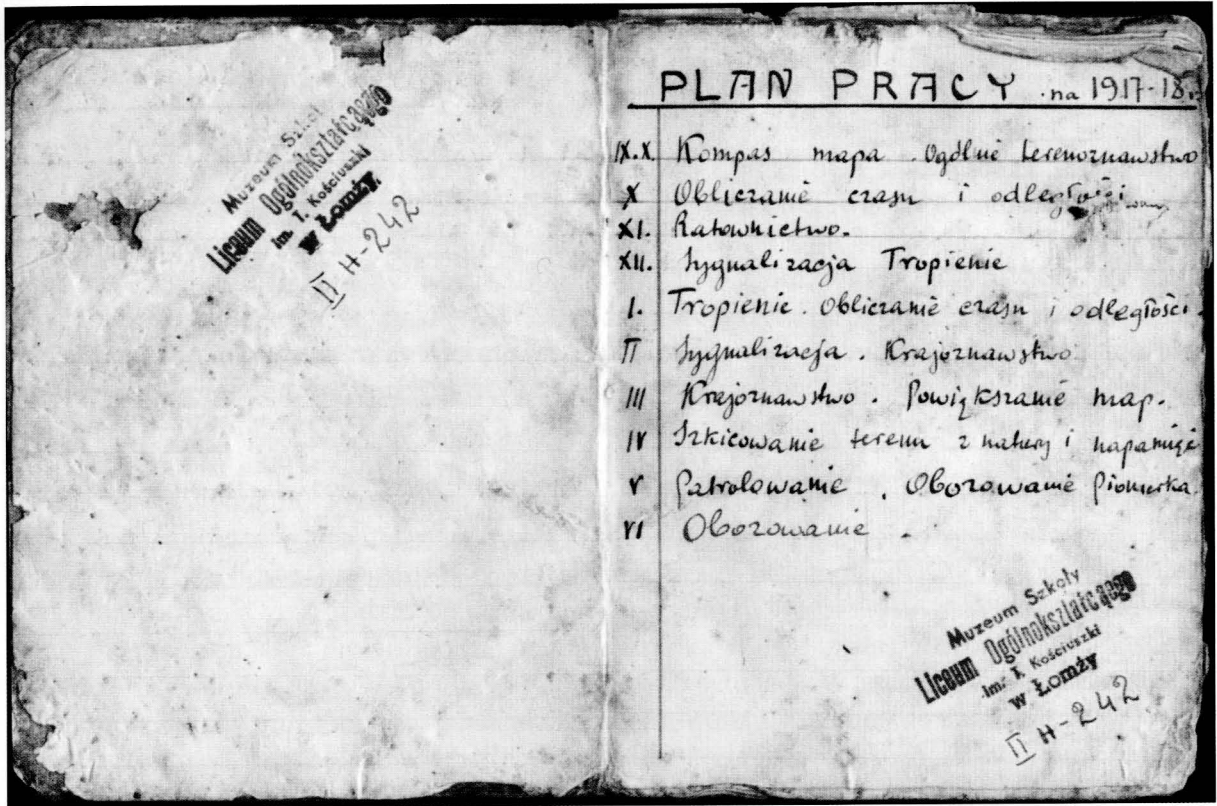 Muzeum Szkoły
Liceum Ogólnokształcącego
im. T. Kościuszki
w Łomży
II H-242
PLAN PRACY na 1917-18.
IX.X. Kompas mapa. Ogólne terenoznawstwo
X Obliczanie czasu i odległości
XI. Ratownictwo.
XII. Sygnalizacja Tropienie
I. Tropienie. Obliczanie czasu i odległości.
II Sygnalizacja. Krajoznawstwo
III Krajoznawstwo. Powiększanie map.
IV Szkicowanie terenu z natury i napamięć
V Patrolowanie. Obozowanie Pionierka.
VI Obozowanie.
Muzeum Szkoły
Liceum Ogólnokształcącego
im. T. Kościuszki
w Łomży
II H-242